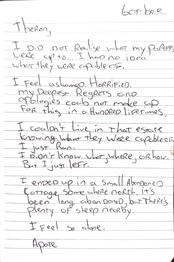 Theron,
I DID NOT Realise what my parents
were up to. I had no idea
what they were capable of.
I Feel ashamed. Horrified.
my Deepest Regrets and
apologies could not make up
For this in a Hundred lifetimes.
I couldn't live in that estate
knowing what they were capable of.
I Just Ran.
I didn't know what, where, or how.
But I Just left.
I ended up in a small Abandoned
Cottage, some where north. It's
been long abandoned, but there's
plenty of sleep nearby
I Feel so alone.